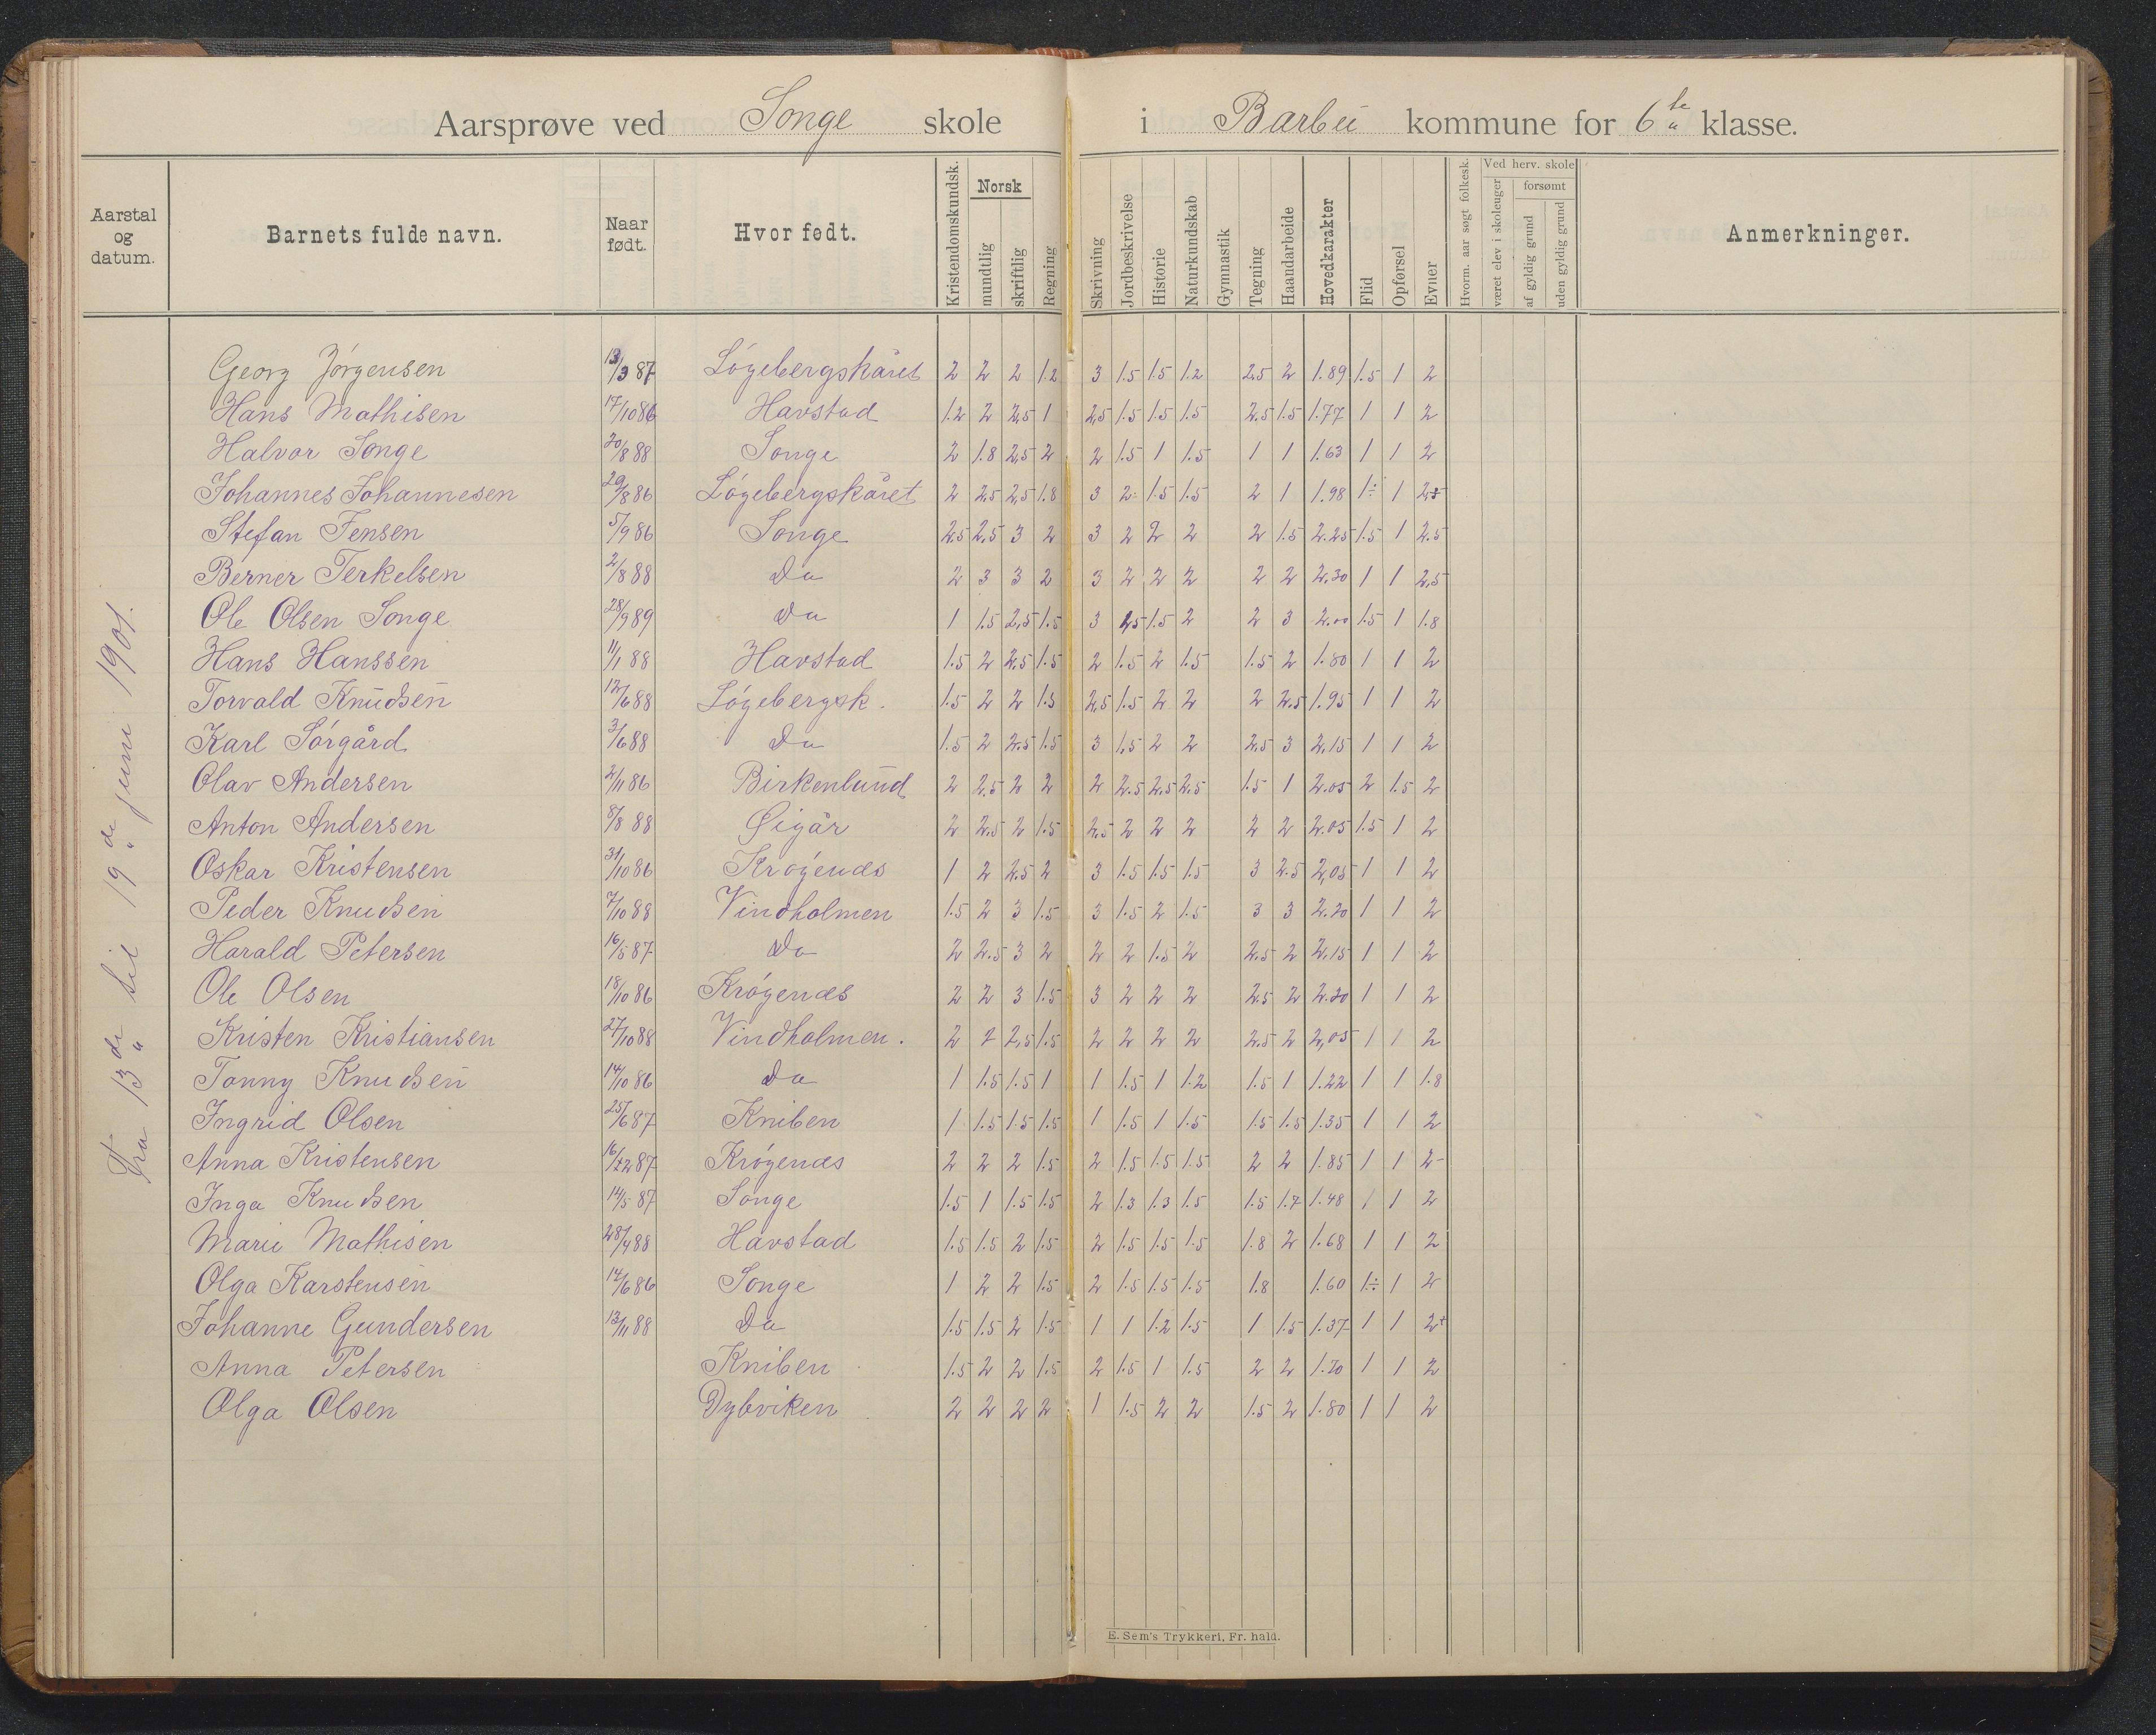 Aarsprøve ved Songe skole i Barbu kommune for 6te klasse.
Aarstal og datum. Barnets fulde navn. Naar født. Hvor født. Kristendomskundsk. Norsk mundtlig skriftlig Regning Skrivning Jordbeskrivelse Historie Naturkundskab Gymnastik Tegning Haandarbeide Hovedkarakter Flid Opførsel Evner Hvorm. aar søgt folkesk. Ved herv. skole været elev i skoleuger forsømt af gyldig grund uden gyldig grund Anmerkninger.
Fra 13de til 19de juni 1901.
Georg Jørgensen 13/3 87 Løgebergskåret 2 2 2 1.2 3 1.5 1.5 1.2 2.5 2 1.89 1.5 1 2
Hans Mathisen 17/10 86 Havstad 1.2 2 2,5 1 2,5 1.5 1.5 1.5 2.5 1.5 1.77 1 1 2
Halvor Songe 20/8 88 Songe 2 1.8 2,5 2 2 1.5 1 1.5 1 1 1.63 1 1 2
Johannes Johannesen 29/8 86 Løgebergskåret 2 2.5 2,5 1.8 3 2 1.5 1.5 2 1 1.98 1÷ 1
Stefan Jensen 5/9 86 Songe 2.5 2,5 3 2 3 2 2 2 2 1.5 2.25 1.5 1 2.5
Berner Terkelsen 2/8 88 Do 2 3 3 2 3 2 2 2 2 2 2.30 1 1 2,5
Ole Olsen Songe 28/9 89 Do 1 1.5 2,5 1.5 3 1.5 2 2 3 2.00 1.5 1 1.8
Hans Hanssen 11/1 88 Havstad 1.5 2 2.5 1.5 2 1.5 2 1.5 1.5 2 1.80 1 1 2
Torvald Knudsen 12/6 88 Løgebergsk. 1.5 2 2 1.5 2,5 1.5 2 2 2 2.5 1.95 1 1 2
Karl Sørgård 3/6 88 Do 1.5 2 2.5 1.5 3 1,5 2 2 2.5 3 2.15 1 1 2
Olav Andersen 2/11 86 Birkenlund 2 2,5 2 2 2 2.5 2.5 2.5 1.5 1 2.05 2 1.5 2
Anton Andersen 8/8 88 Øigår 2 2.5 2 1.5 2,5 2 2 2 2 2 2.05 1.5 1 2
Oskar Kristensen 31/10 86 Krøgenæs 1 2 2.5 2 3 1.5 1.5 1.5 3 2.5 2,05 1 1 2
Peder Knudsen 7/10 88 Vindholmen 1.5 2 3 1.5 3 1.5 2 1.5 3 3 2.20 1 1 2
Harald Petersen 16/5 87 Do 2 2.5 3 2 2 2 1.5 2 2.5 2 2.15 1 1 2
Ole Olsen 18/10 86 Krøgenæs 2 2 3 1.5 3 2 2 2 2.5 2 2.20 1 1 2
Kristen Kristiansen 27/10 88 Vindholmen. 2 2 2,5 1.5 2 2 2 2 2.5 2 2,05 1 1 2
Tonny Knudsen 14/10 86 Do 1 1.5 1.5 1 1 1.5 1 1.2 1.5 1 1.22 1 1 1.8
Ingrid Olsen 25/6 87 Kniben 1 1.5 1.5 1.5 1 1.5 1 1.5 1.5 1.5 1.35 1 1 2
Anna Kristensen 16/12 87 Krøgenæs 2 2 2 1.5 2 1.5 1.5 1.5 2 2 1.85 1 1 2-
Inga Knudsen 14/5 87 Songe 1.5 1 1.5 1.5 2 1.3 1.3 1.5 1.5 1.7 1.48 1 1 2
Marie Mathisen 28/4 88 Havstad 1.5 1.5 2 1.5 2 1.5 1.5 1.5 1.8 2 1.68 1 1 2
Olga Karstensen 14/6 86 Songe 1 2 2 1.5 2 1.5 1.5 1.5 1.8 1.60 1÷ 1 2
Johanne Gundersen 13/11 88 Do 1.5 1.5 2 1.5 1 1 1.2 1.5 1 1.5 1.37 1 1 2+
Anna Petersen Kniben 1.5 2 2 1.5 2 1.5 1 1.5 2 2 1.70 1 1 2
Olga Olsen Dybviken 2 2 2 2 1 1.5 2 2 1.5 2 1.80 1 1 2
E. Sem's Trykkeri, Fr. hald.